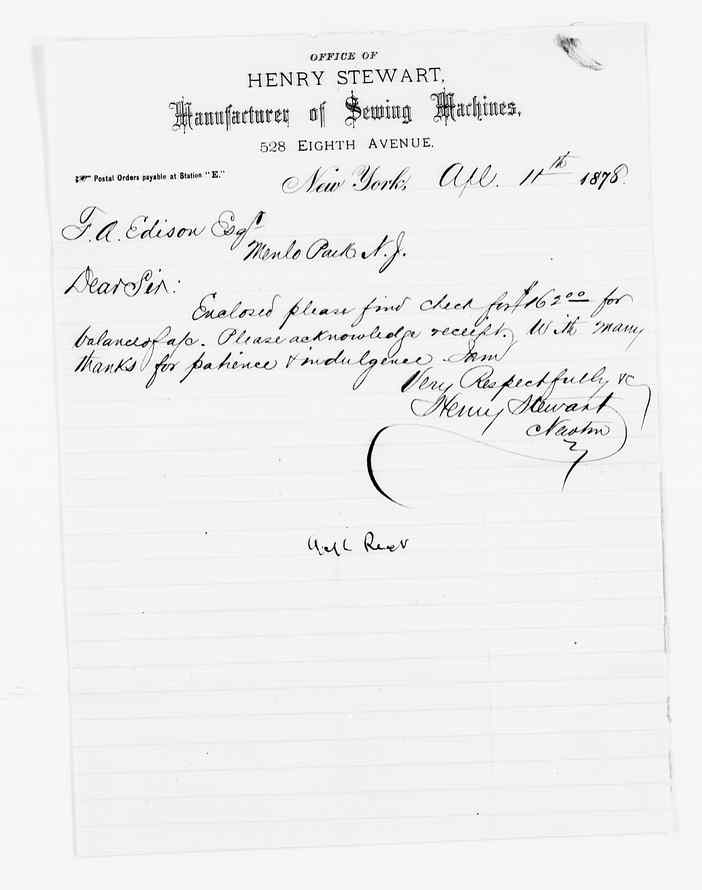 OFFICE OF
HENRY STEWART,
Manufacturer of Sewing Machines,
528 EIGHTH AVENUE,
Postal Orders payable at Station "E."
New York, Apl. 11th 1878.
T. A. Edison Esqr
Menlo Park N. J.
Dear Sir:
Enclosed please find check for $162 00 for
balance of a/c. Please acknowledge receipt. With many
thanks for patience & indulgence I am
Very Respectfully &c
Henry Stewart